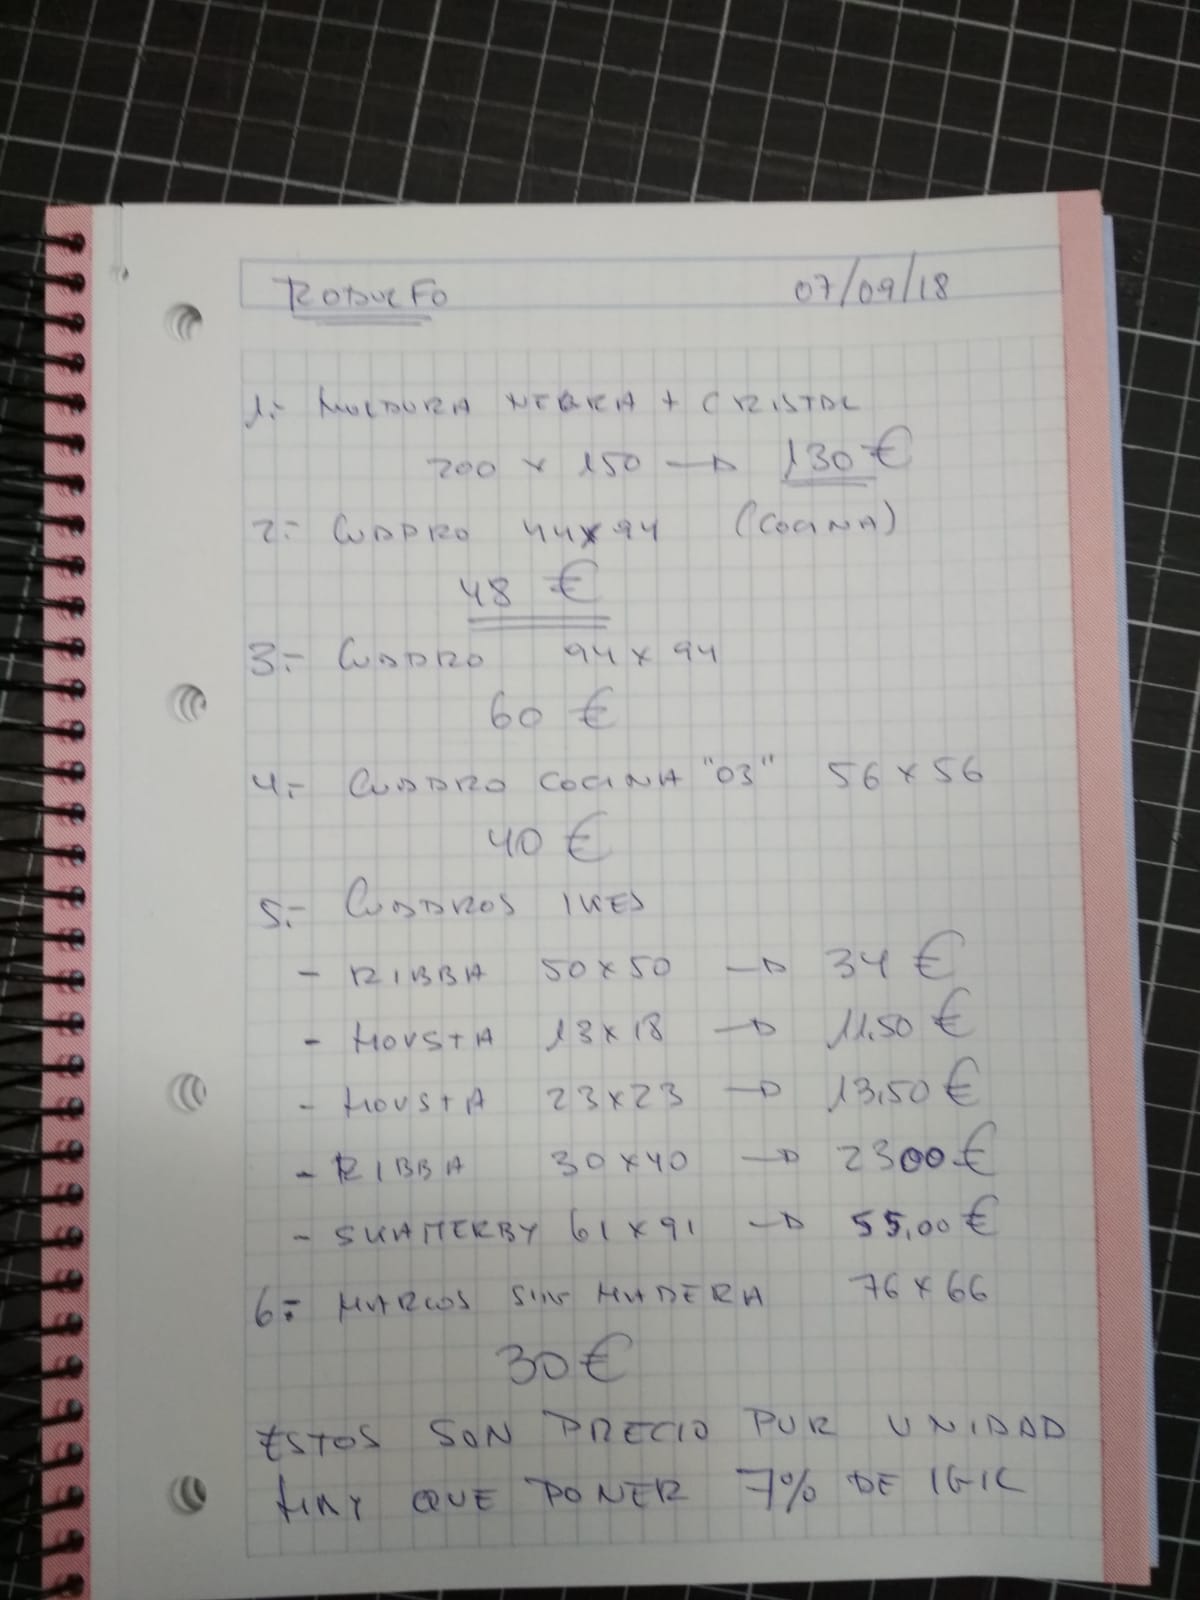 RODOLFO 07/09/18
1.- MOLDURA NEGRA + CRISTAL
200 x 150 → 130 €
2.- CUADRO 44x94 (COCINA)
48 €
3.- CUADRO 94 x 94
60 €
4.- CUADRO COCINA "03" 56 x 56
40 €
5.- CUADROS IKEA
- RIBBA 50 x 50 → 34 €
- HOVSTA 13 x 18 → 11,50 €
- HOVSTA 23 x 23 → 13,50 €
- RIBBA 30 x 40 → 23 00 €
- SKATTERBY 61 x 91 → 55,00 €
6.- MARCOS SIN MADERA 76 x 66
30 €
ESTOS SON PRECIO POR UNIDAD
HAY QUE PONER 7% DE IGIC